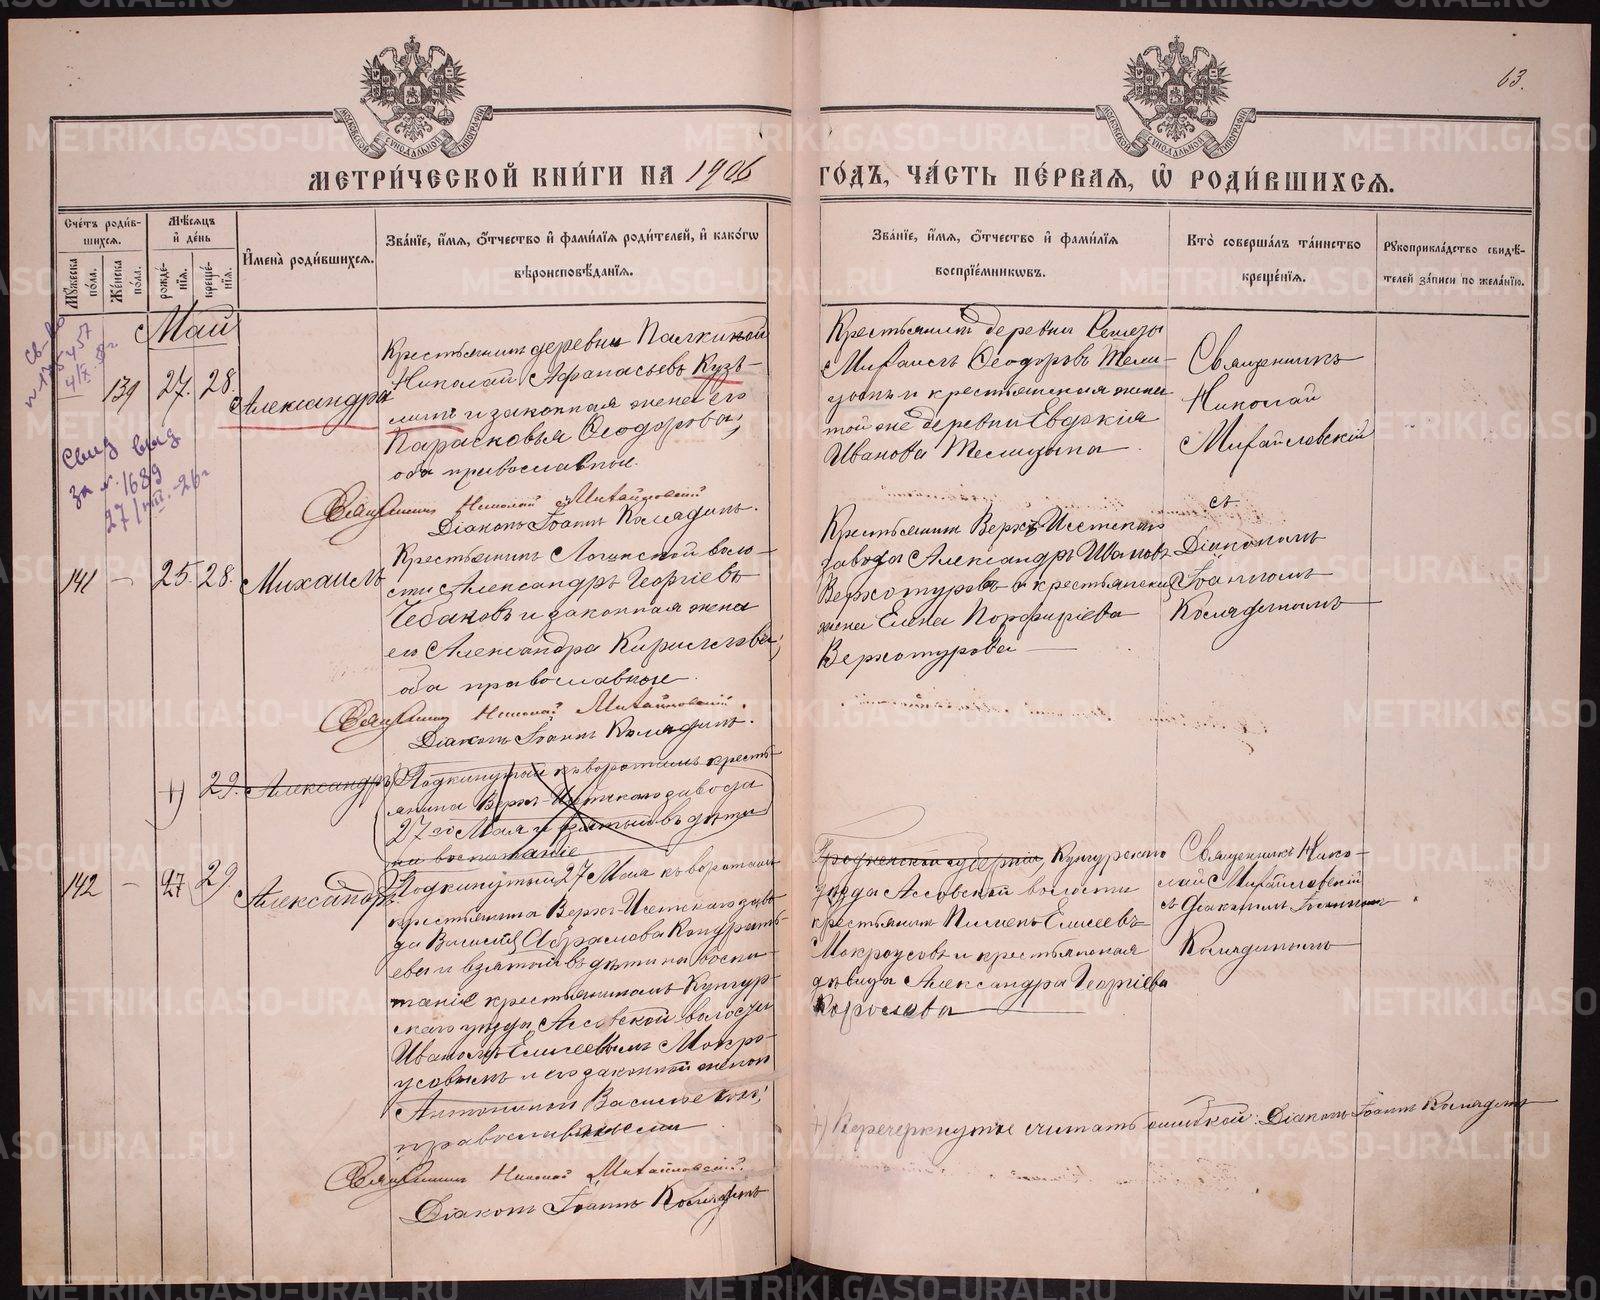 63.
МЕТРИ́ЧЕСКОЙ КНИ́ГИ НА 1906 ГО́ДЪ, ЧА́СТЬ ПЕ́РВАЯ, Ѡ РОДИ́ВШИХСЯ.
Сче́тъ роди́вшихся.
Му́жеска по́ла.
Же́нска по́ла.
Мѣ́сяцъ и҆ де́нь
рожде́нїя.
креще́нїя.
И҆мена̀ роди́вшихся.
Зва́нїе, и҆́мя, ѻ҆́тчество и҆ фами́лїя роди́телей, и҆ како́гѡ
вѣроисповѣ́данїя.
Зва́нїе, и҆́мя, ѻ҆́тчество и҆ фами́лїя
воспрїе́мникѡвъ.
Кто̀ соверша́лъ та́инство
креще́нїя.
Рꙋкоприкла́дство свидѣ́-
телей за́писи по жела́нїю.
Май
139
27. 28.
Александра
Крестьянинъ деревни Палкиной
Николай Афанасьевъ Кузь-
минъ и законная жена его
Парасковья Ѳеодорова,
оба православные.
Священникъ Николай Михайловскій
Діаконъ Іоаннъ Колядинъ.
Крестьянинъ деревни
Михаилъ Ѳеодоровъ
и крестьянская жена
той же деревни Евдокія
Иванова
Священникъ
Николай
Михайловскій
съ
Діакономъ
Іоанномъ
Колядинымъ
Свид выд
за № 1689
27/VIII-26г
141 — 25. 28. Михаилъ
Крестьянинъ воло-
сти Александръ Георгіевъ
Чебаковъ и законная жена
его Александра Кириллова,
оба православные.
Священникъ Николай Михайловскій.
Діаконъ Іоаннъ Колядинъ.
Крестьянинъ Верхъ-Исетскаго
завода Александръ Ивановъ
Верхотуровъ и крестьянская
жена Елена Порфиріева
Верхотурова —
+) 29. Александръ
Подкинутый къ воротамъ кресть-
янина Верхъ-Исетскаго завода
27го Мая и взятый въ дѣти
на воспитаніе
142 — 27 29. Александръ
Подкинутый 27 Мая къ воротамъ
крестьянина Верхъ-Исетскаго заво-
да Василія Абрамова Кондрать-
ева и взятый въ дѣти на воспи-
таніе крестьяниномъ Кунгур-
скаго уѣзда Ассовской волости
Иваномъ Елисеевымъ Мокро-
усовымъ и его законной женой
Антониной Васильевой,
православными
Священникъ Николай Михайловскій.
Діаконъ Іоаннъ Колядинъ
губерніи, Кунгурскаго
уѣзда Ассовской волости
крестьянинъ Пименъ Елисеевъ
Мокроусовъ и крестьянская
дѣвица Александра Георгіева
Священникъ Нико-
лай Михайловскій
съ Діакономъ Іоанномъ
Колядинымъ
+) Перечеркнутое считать ошибкой: Діаконъ Іоаннъ Колядинъ
METRIKI.GASO-URAL.RU